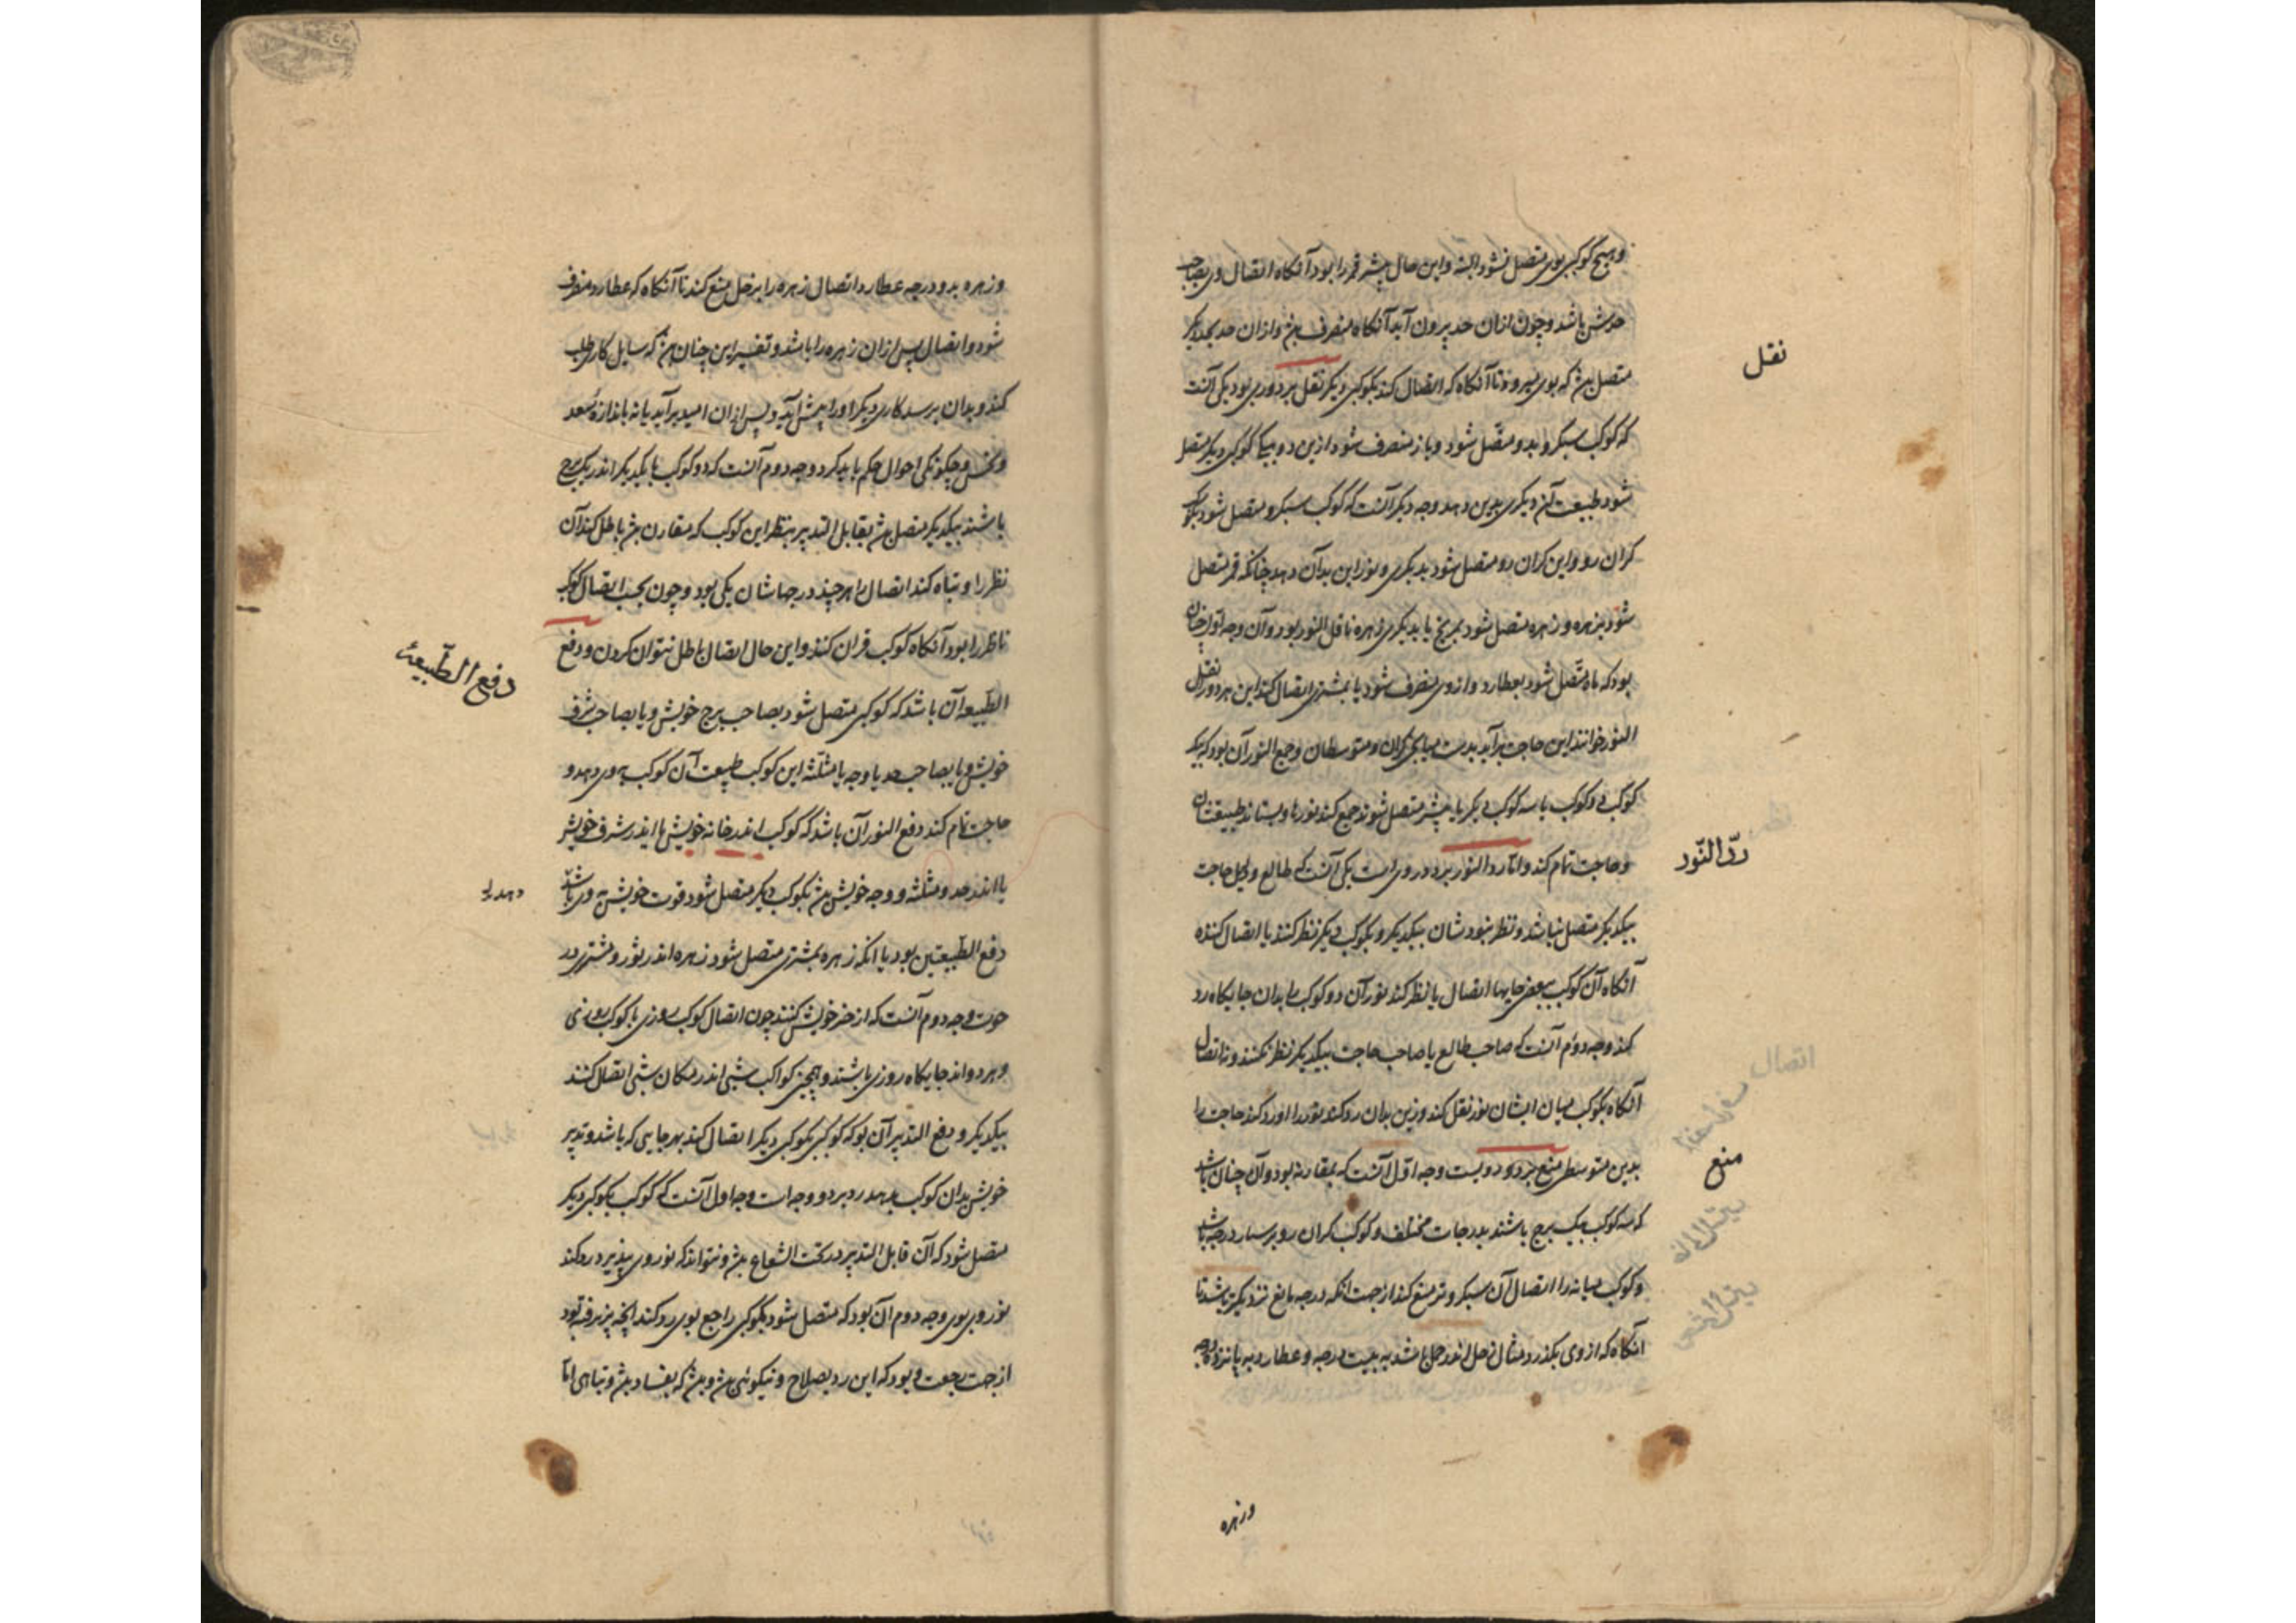 و هیچ کوکبی بوی متصل نشود البته و این حال بیشتر قمر را بود آنکاه اتصال وی بصاحب
حدش باشد و چون ازان حد بیرون آید آنکاه منصرف بود و ازان حد بحد دیکر
نقل
متصل بود که بوی میرود تا آنکاه که اتصال کند بکوکبی دیکر نقل بر دو روی بود یکی آنست
که کوکب سبکرو بدو متصل شود و باز منصرف شود ازین و بکوکبی دیکر متصل
شود طبیعت آن دیکری بدین دهد وجه دیکر آنست که کوکب سبکرو متصل شود بکوکب
کران رو و این کران رو متصل شود بدیکری و نور این بدآن دهد چنانکه قمر متصل
شود بزهره و زهره متصل شود بمریخ یا بدیکری زهره ناقل النور بود و آن وجه اول چنان
بود که ماه متصل شود بعطارد و از وی منصرف شود یا بمشتری اتصال کند این هر دو را نقل
النور خوانند این حاجت برآید بدست میانجی کران و متوسطان و جمع النور آن بود که بیک
کوکب دو کوکب یا سه کوکب دیکر یا بیشتر متصل شوند جمع کند نورها و بستاند طبیعتشان
رد النّور
و حاجت تمام کند و اما رد النور بر دو روی است یکی آنست که طالع و دلیل حاجت
بیکدیکر متصل نباشد و نظر نبود شان بیکدیکر و بکوکب دیکر نظر کنند یا اتصال کننده
آنکاه آن کوکب ببعض جایها اتصال یا نظر کند نور آن دو کوکب را بدان جایکاه رد
کند وجه دوم آنست که صاحب طالع یا صاحب حاجت بیکدیکر نظر نکنند و نه اتصال
آنکاه بکوکب میان ایشان نور نقل کند و زین بدان رد کند نور را و رد کند حاجت را
منع
بدین متوسطی منع بر دو رویست وجه اول آنست که بمقارنه بود و آن چنان باشد
که سه کوکب بیک برج باشند بدرجات مختلف و کوکب کران رو بر بسیار درجه باشد
و کوکب میانه را اتصال آن سبکروتر منع کند از جهت آنکه درجه مانع نزدیکتر باشد تا
آنکاه که از وی بکذرد مثال زحل اندر حمل باشد به بیست درجه و عطارد به پانزده درجه
وزهره
وزهره بدو درجه عطارد اتصال زهره را بزحل منع کند تا آنکاه که عطارد منصرف
شود و اتصال پس ازان زهره را باشد و تفسیر این چنان بود که سایل کاری طلب
کند و بدان برسد کاری دیکر او را پیش آید و پس ازان امید برآید یا نه باندازهٔ سعد
و نحس و چکونکی احوال حکم باید کرد وجه دوم آنست که دو کوکب با یکدیکر اندر یک برج
باشند بیکدیکر متصل بود بقابل التدبیر بنظر این کوکب که مقارن بود باطل کند آن
نظر را و تباه کند اتصال را هرچند درجهاشان یکی بود و چون بحسب اتصال کوکب
ناظر را بود آنکاه کوکب قران کند و این حال اتصال باطل نتوان کردن و دفع
دفع الطّبیعه
الطبیعه آن باشد که کوکبی متصل شود بصاحب برج خویش و یا بصاحب شرف
خویش و یا بصاحب حد یا وجه یا مثلثه این کوکب طبیعت آن کوکب به وی دهد و
حاجت تمام کند دفع النور آن باشد که کوکب اندر خانه خویش یا اندر شرف خویش
یا اندر حد و مثلثه و وجه خویش بود بکوکب دیکر متصل شود قوت خویش به وی باشد
دفع الطبیعتین بود یا آنکه زهره بمشتری متصل شود زهره اندر ثور و مشتری در
حوت وجه دوم آنست که از حیز خویش کنند چون اتصال کوکب روزی با کوکب روزی
و هر دو اندر جایکاه روزی باشند و همچنین کواکب شبی اندر مکان شبی اتصال کنند
بیکدیکر و دفع التدبیر آن بود که کوکبی بکوکبی دیکر اتصال کند بهر جایی که باشد و تدبیر
خویش بدان کوکب بدهد رد بر دو وجه است وجه اول آنست که کوکب بکوکبی دیکر
متصل شود که آن قابل التدبیر در تحت الشعاع بود و نتواند که نور وی پذیرد رد کند
نور وی بوی وجه دوم آن بود که متصل شود بکوکبی راجع بوی رد کند آنچه پذیرفته بود
از جهت رجعت و بود که این رد بصلاح و نیکوئی بود و بود که بفساد بود و تباهی اما